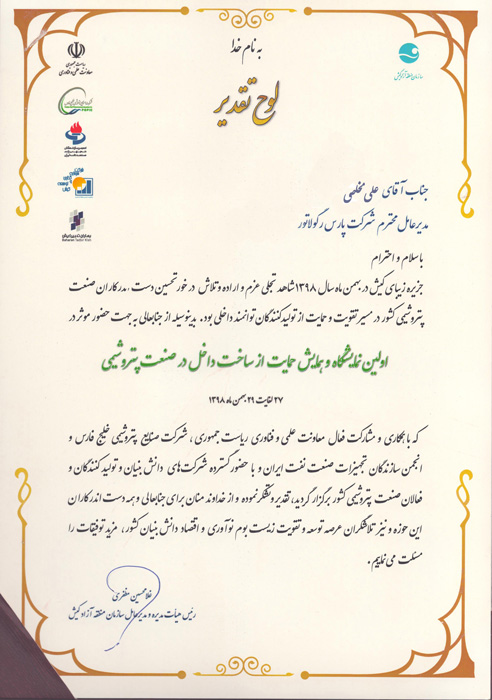 به نام خدا
ریاست جمهوری
معاونت علمی و فناوری
سازمان منطقه آزاد کیش
لوح تقدیر
جناب آقای علی مخلصی
مدیرعامل محترم شرکت پارس رگولاتور
با سلام و احترام
جزیره زیبای کیش در بهمن ماه سال ۱۳۹۸ شاهد تجلی عزم و اراده و تلاش در خور تحسین دست اندرکاران صنعت
پتروشیمی کشور در مسیر تقویت و حمایت از تولیدکنندگان توانمند داخلی بود. بدینوسیله از جنابعالی به جهت حضور موثر در
اولین نمایشگاه و همایش حمایت از ساخت داخل در صنعت پتروشیمی
۲۷ لغایت ۲۹ بهمن ماه ۱۳۹۸
که با همکاری و مشارکت فعال معاونت علمی و فناوری ریاست جمهوری، شرکت صنایع پتروشیمی خلیج فارس و
انجمن سازندگان تجهیزات صنعت نفت ایران و با حضور گسترده شرکت‌های دانش بنیان و تولید کنندگان و
فعالان صنعت پتروشیمی کشور برگزار گردید، تقدیر و تشکر نموده و از خداوند منان برای جنابعالی و همه دست اندرکاران
این حوزه و نیز تلاشگران عرصه توسعه و تقویت زیست بوم نوآوری و اقتصاد دانش بنیان کشور، مزید توفیقات را
مسئلت می نماییم.
غلامحسین مظفری
رئیس هیأت مدیره و مدیرعامل سازمان منطقه آزاد کیش